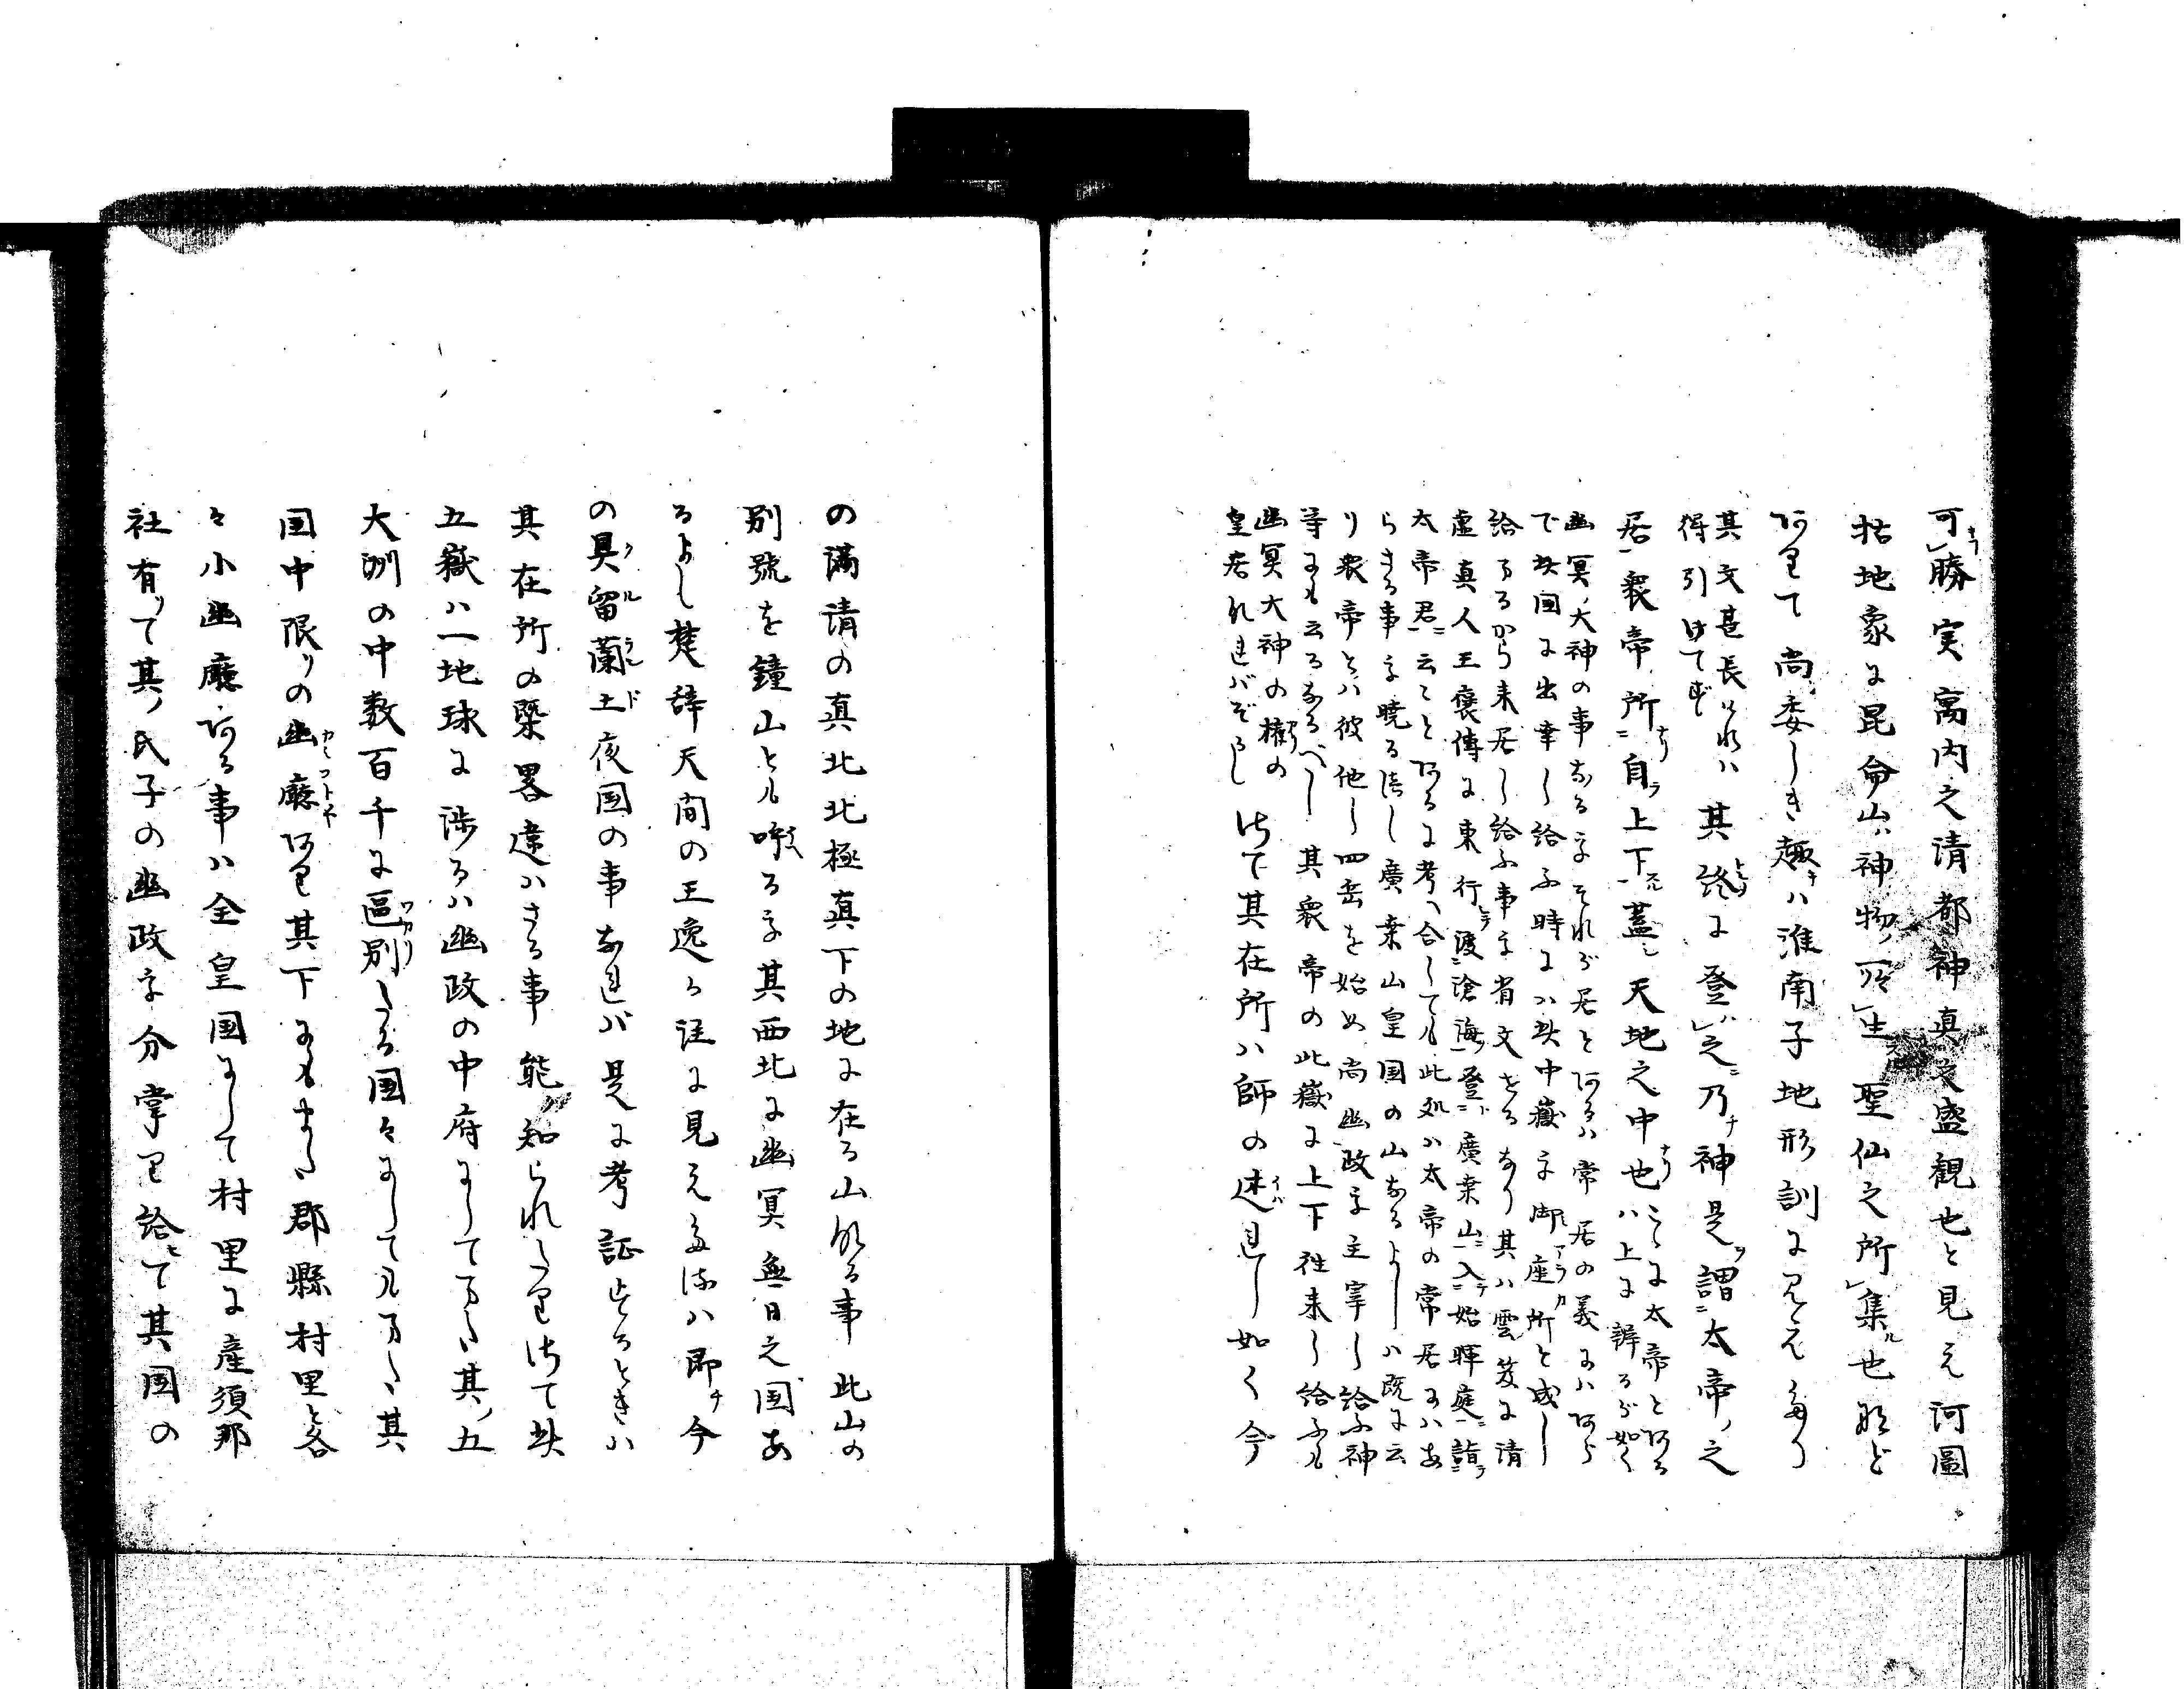 可勝実寓内之清都神真之盛観也と見え河圖
括地象に昆侖山ハ神物ノ所生聖仙之所集也など
阿りて尚委しき趣ハ淮南子地形訓に見え多り
其文甚長けれハ
得引けてず
其終に登ハ之ニ乃チ神是ヲ謂ニ太帝ノ之
居衆帝所ニ自上下蓋シ天地之中也
こゝに太帝と阿る
ハ上に辨るが如く
幽冥ノ大神の事なるをそれが居と阿るハ常居の義にハ阿ら
で此国に出幸し給ふ時にハ此中嶽を御座所と成し
給るから来居し給ふ事を省文せるなり其ハ雲笈に清
虚真人王褒傳に東行渡滄海登廣桒山入始暉庭詣
太帝君云々と阿るに考ヘ合しても此処ハ太帝の常居にハあ
らさる事を暁るべし廣桒山皇国の山なるよしハ既に云
り衆帝とハ彼他し四岳を始め尚幽政を主宰し給ふ神
等にも云るなるべし其衆帝の此嶽に上下往来し給ふも
幽冥大神の
皇居れればぞかし
はて其在所ハ師の述れし如く今
の満清の真北北極直下の地に在る山なる事此山の
別號を鐘山とも呼るを其西北に幽冥無日之国あ
るよし楚辞天問の王逸が註に見え多るハ即チ今
の具留蘭土夜国の事なれバ是に考証するときハ
其在所の槩畧違ハさる事能知られたりはて此
五嶽ハ一地球に渉るハ幽政の中府にして又其ノ五
大洲の中数百千に區別たる国々にしても又其
国中限りの幽廰阿り其下にもまた郡縣村里と各
々小幽廰阿る事ハ全皇国にして村里に産須那
社有ッて其ノ氏子の幽政を分掌り給ヒて其国の